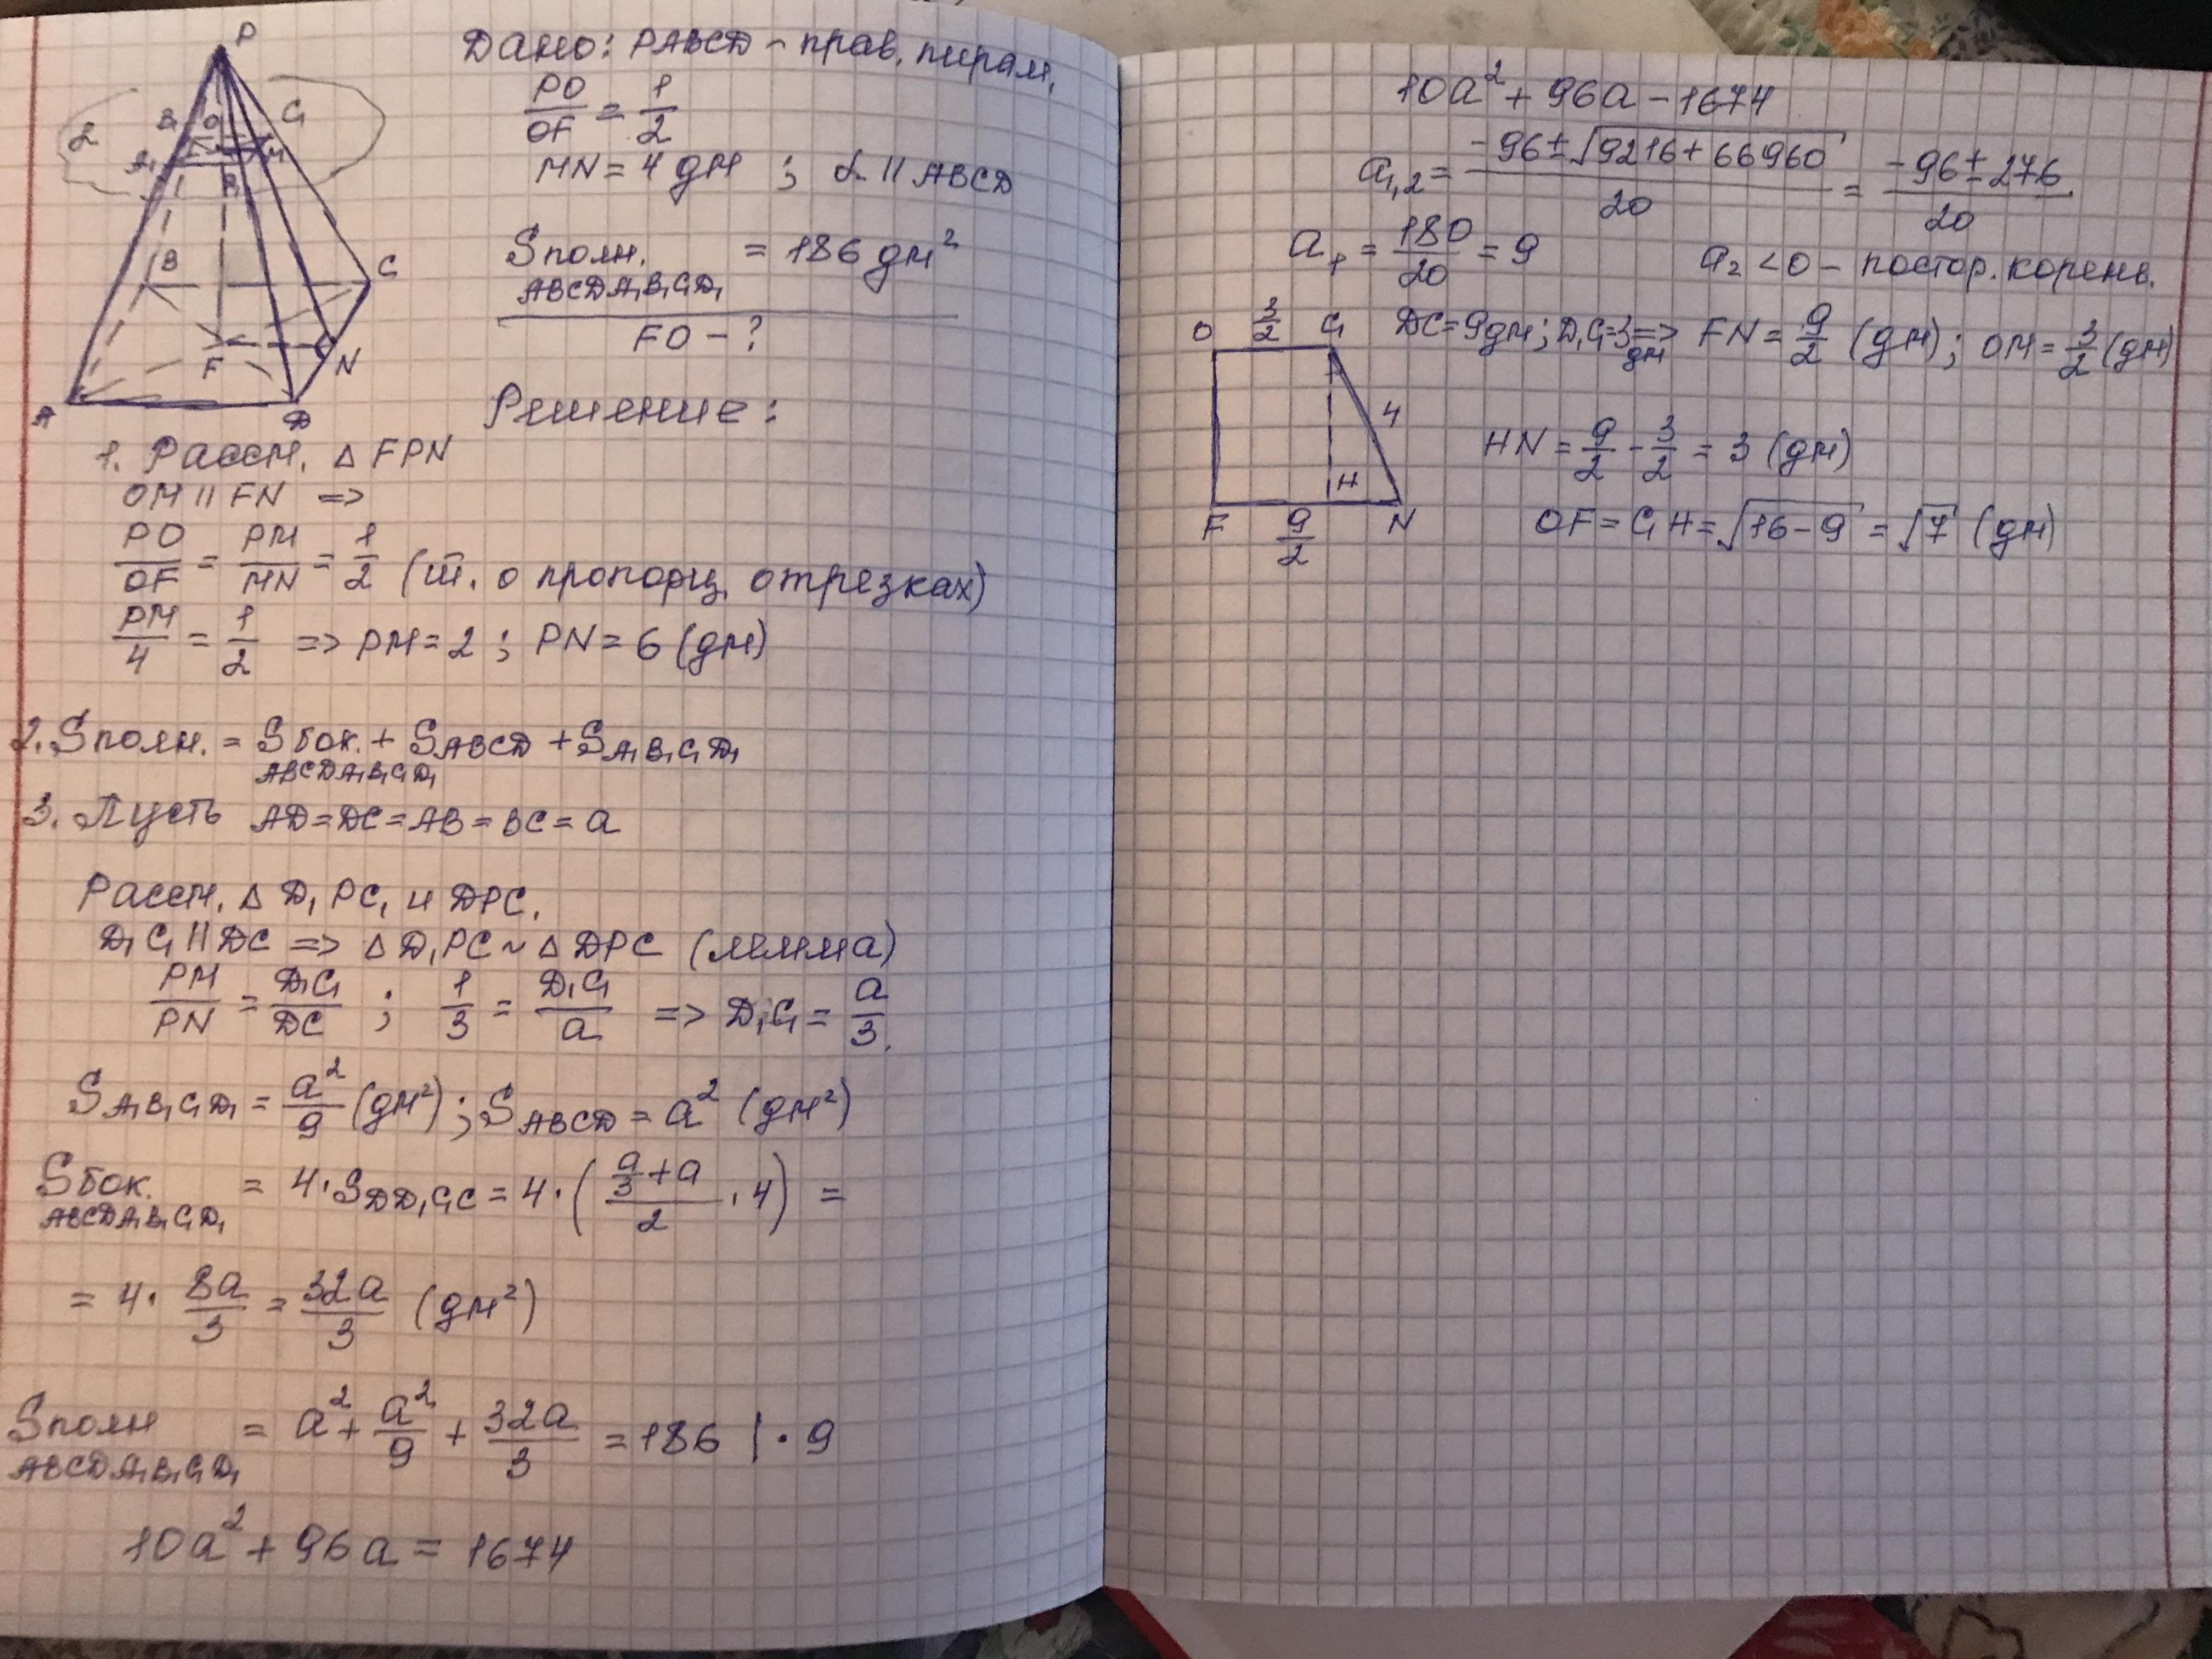 P
B₁ O C₁
α A₁ M
D₁
B C
F N
A D
Дано: PABCD – прав. пирам.
PO/OF = 1/2
MN = 4 дм ; α || ABCD
Sполн. ABCDA₁B₁C₁D₁ = 186 дм²
FO – ?
Решение:
1. Рассм. △ FPN
OM || FN =>
PO/OF = PM/MN = 1/2 (т. о пропорц. отрезках)
PM/4 = 1/2 => PM = 2 ; PN = 6 (дм)
2. Sполн. = Sбок. ABCDA₁B₁C₁D₁ + SABCD + SA₁B₁C₁D₁
3. Пусть AD = DC = AB = BC = a
Рассм. △ D₁PC₁ и DPC.
D₁C₁ || DC => △ D₁PC ~ △ DPC (лемма)
PM/PN = D₁C₁/DC ; 1/3 = D₁C₁/a => D₁C₁ = a/3.
SA₁B₁C₁D₁ = a²/9 (дм²) ; SABCD = a² (дм²)
Sбок. ABCDA₁B₁C₁D₁ = 4 · SDD₁C₁C = 4 · ((a/3 + a)/2 · 4) =
= 4 · 8a/3 = 32a/3 (дм²)
Sполн ABCDA₁B₁C₁D₁ = a² + a²/9 + 32a/3 = 186 | · 9
10a² + 96a = 1674
10a² + 96a – 1674
a₁,₂ = (-96 ± √(9216 + 66960))/20 = (-96 ± 276)/20.
a₁ = 180/20 = 9 a₂ < 0 – постор. корень.
DC = 9 дм ; D₁C₁ = 3 дм => FN = 9/2 (дм) ; OM = 3/2 (дм)
O 3/2 C₁
4
H
F 9/2 N
HN = 9/2 - 3/2 = 3 (дм)
OF = C₁H = √(16 – 9) = √7 (дм)